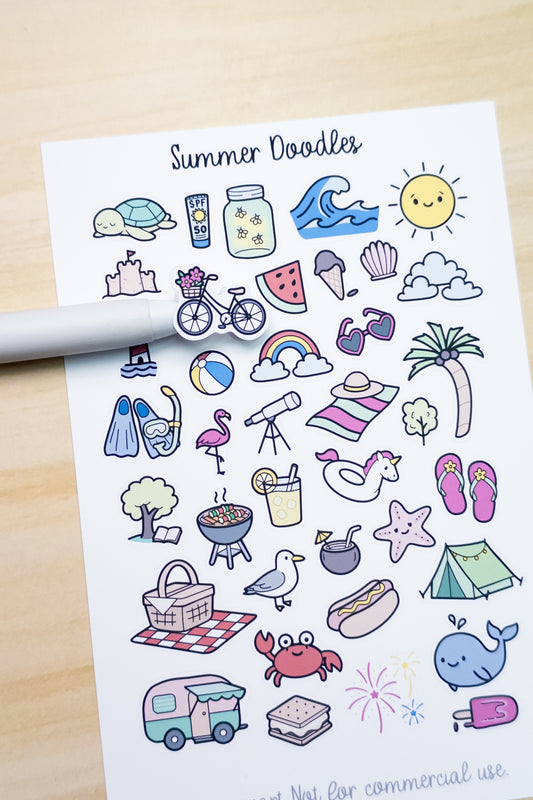 Summer Doodles
SPF
50
Not for commercial use.